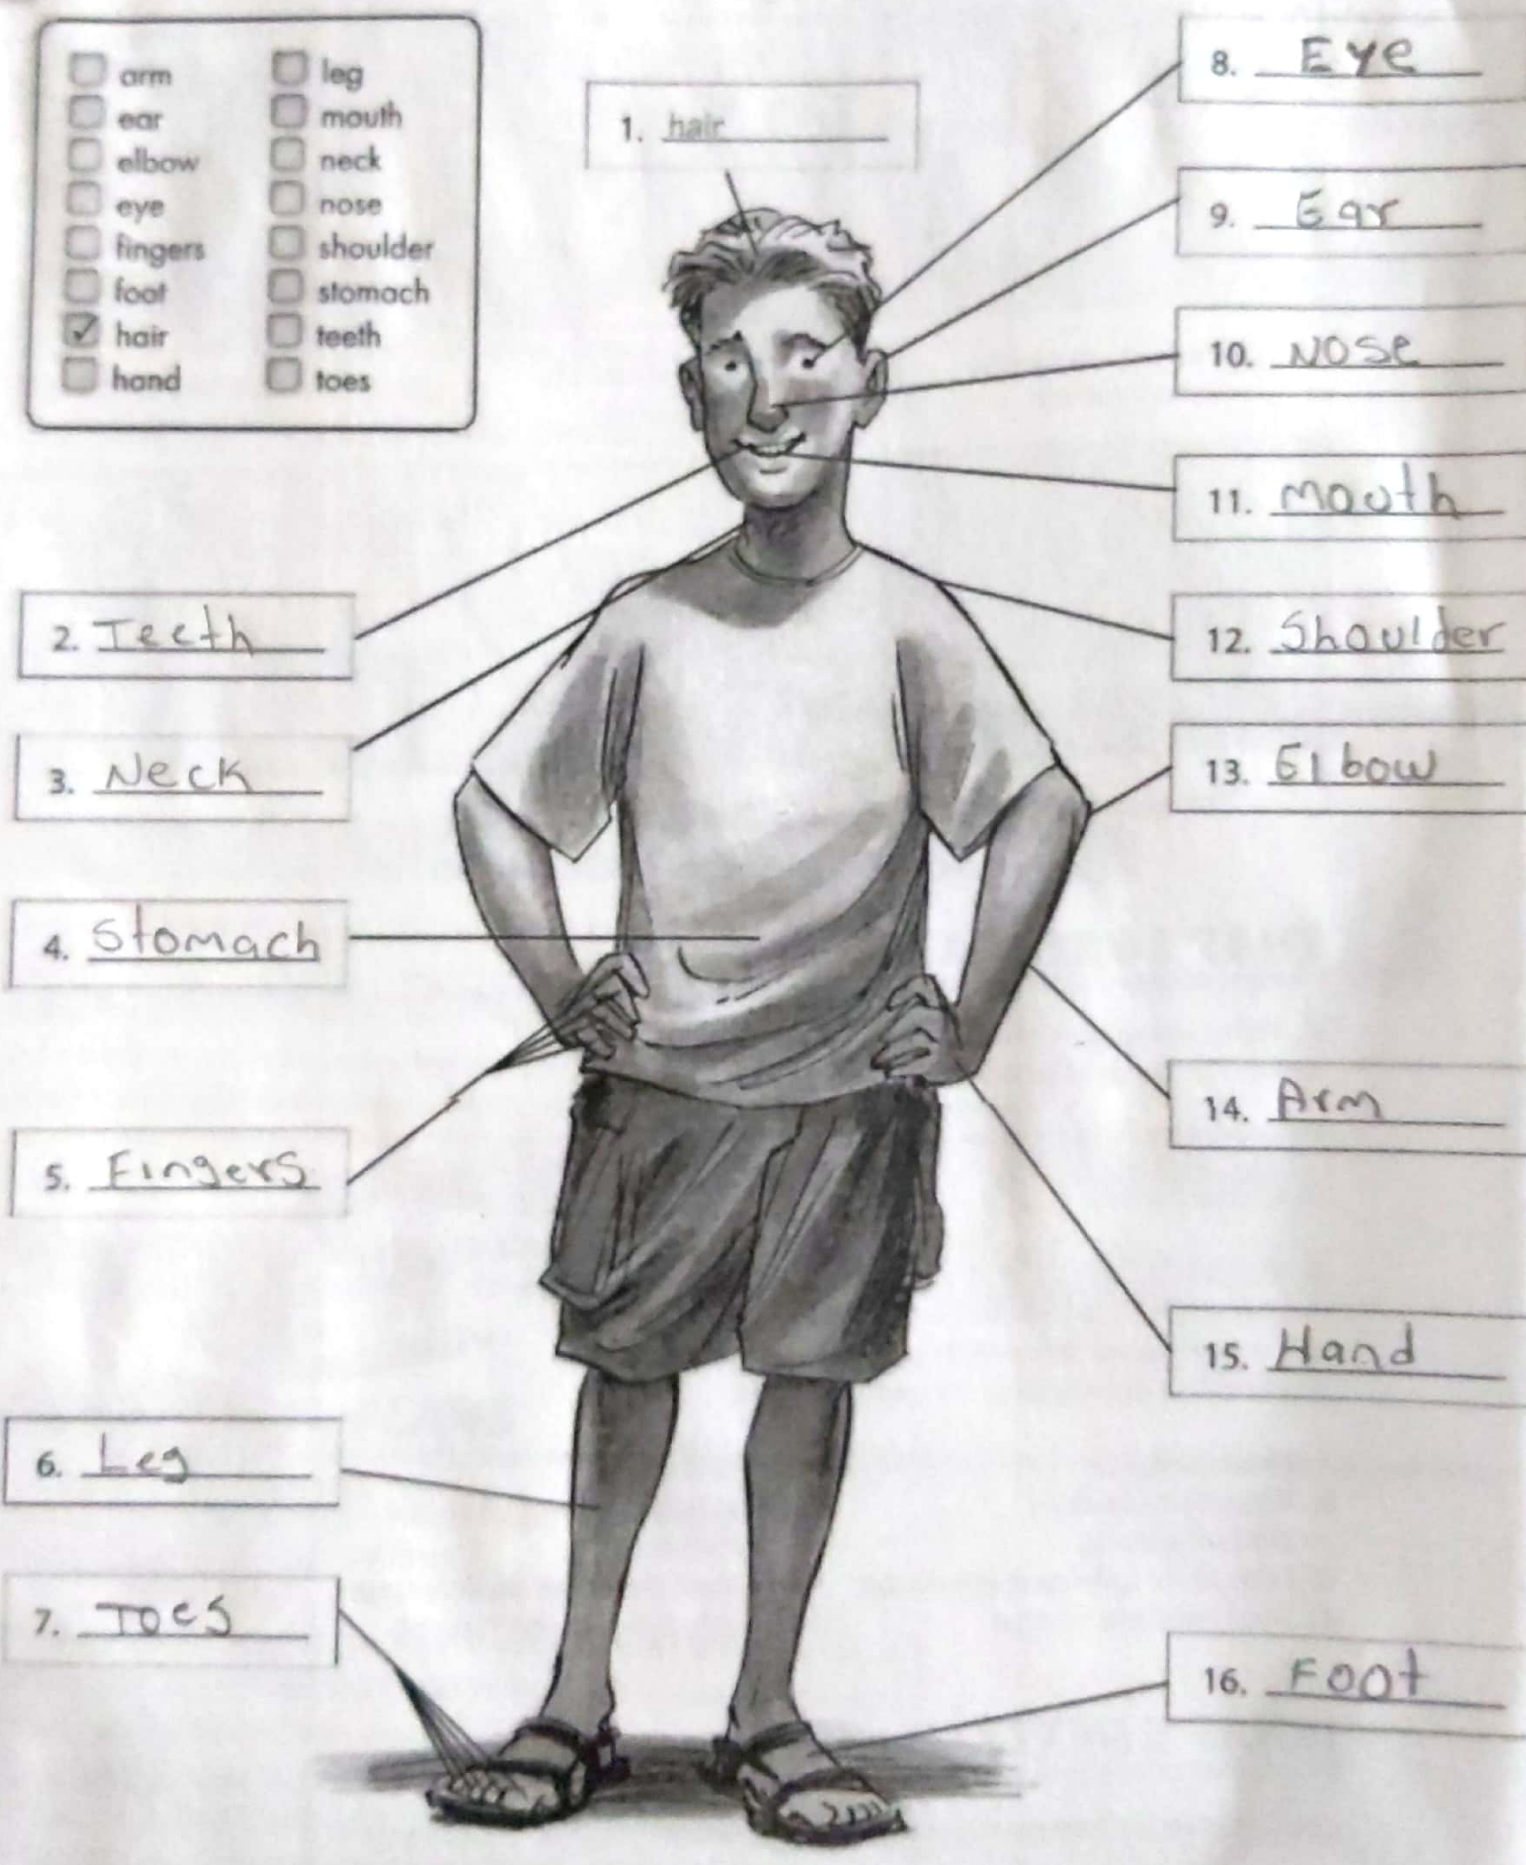 arm
ear
elbow
eye
fingers
foot
hair
hand
leg
mouth
neck
nose
shoulder
stomach
teeth
toes
1. hair
2. Teeth
3. Neck
4. Stomach
5. Fingers
6. Leg
7. Toes
8. Eye
9. Ear
10. Nose
11. Mouth
12. Shoulder
13. Elbow
14. Arm
15. Hand
16. Foot